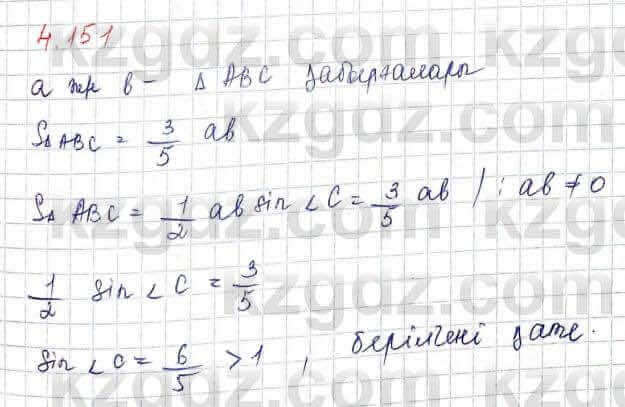 4.151
a және b – Δ ABC қабырғалары
S Δ ABC = 3/5 ab
S Δ ABC = 1/2 ab sin ∠C = 3/5 ab / : ab ≠ 0
1/2 sin ∠C = 3/5
sin ∠C = 6/5 > 1 , берілгені қате.
kzgdz.com